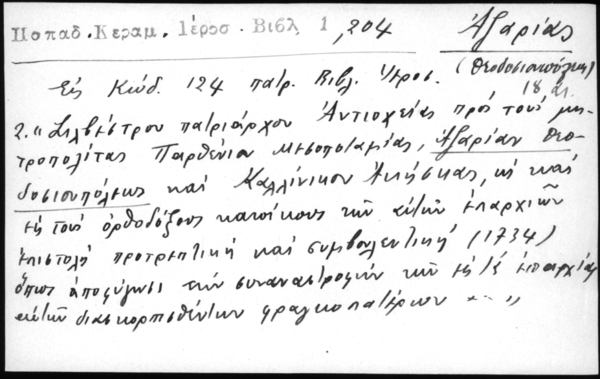 Παπαδ. Κεραμ. Ἱεροσ. Βιβλ 1, 204 Ἀζαρίας
(Θεοδοσιουπόλεως)
Εἰς Κώδ. 124 πατρ. Βιβλ. Ἱεροσ. 18 αἰ.
2. "Σιλβέστρου πατριάρχου Ἀντιοχείας πρὸς τοὺς μη-
τροπολίτας Παρθένιον Μεσοποταμίας, Ἀζαρίαν Θεο-
δοσιουπόλεως καὶ Καλλίνικον Ἀκίσκας, καὶ
εἰς τοὺς ὀρθοδόξους κατοίκους τῶν αὐτῶν ἐπαρχιῶν
ἐπιστολὴ προτρεπτικὴ καὶ συμβουλευτικὴ (1734)
ὅπως ἀποφύγωσι τὴν συναναστροφὴν τῶν ἐπαρχίας
διασκορπισθέντων φραγκοπατέρων .. "